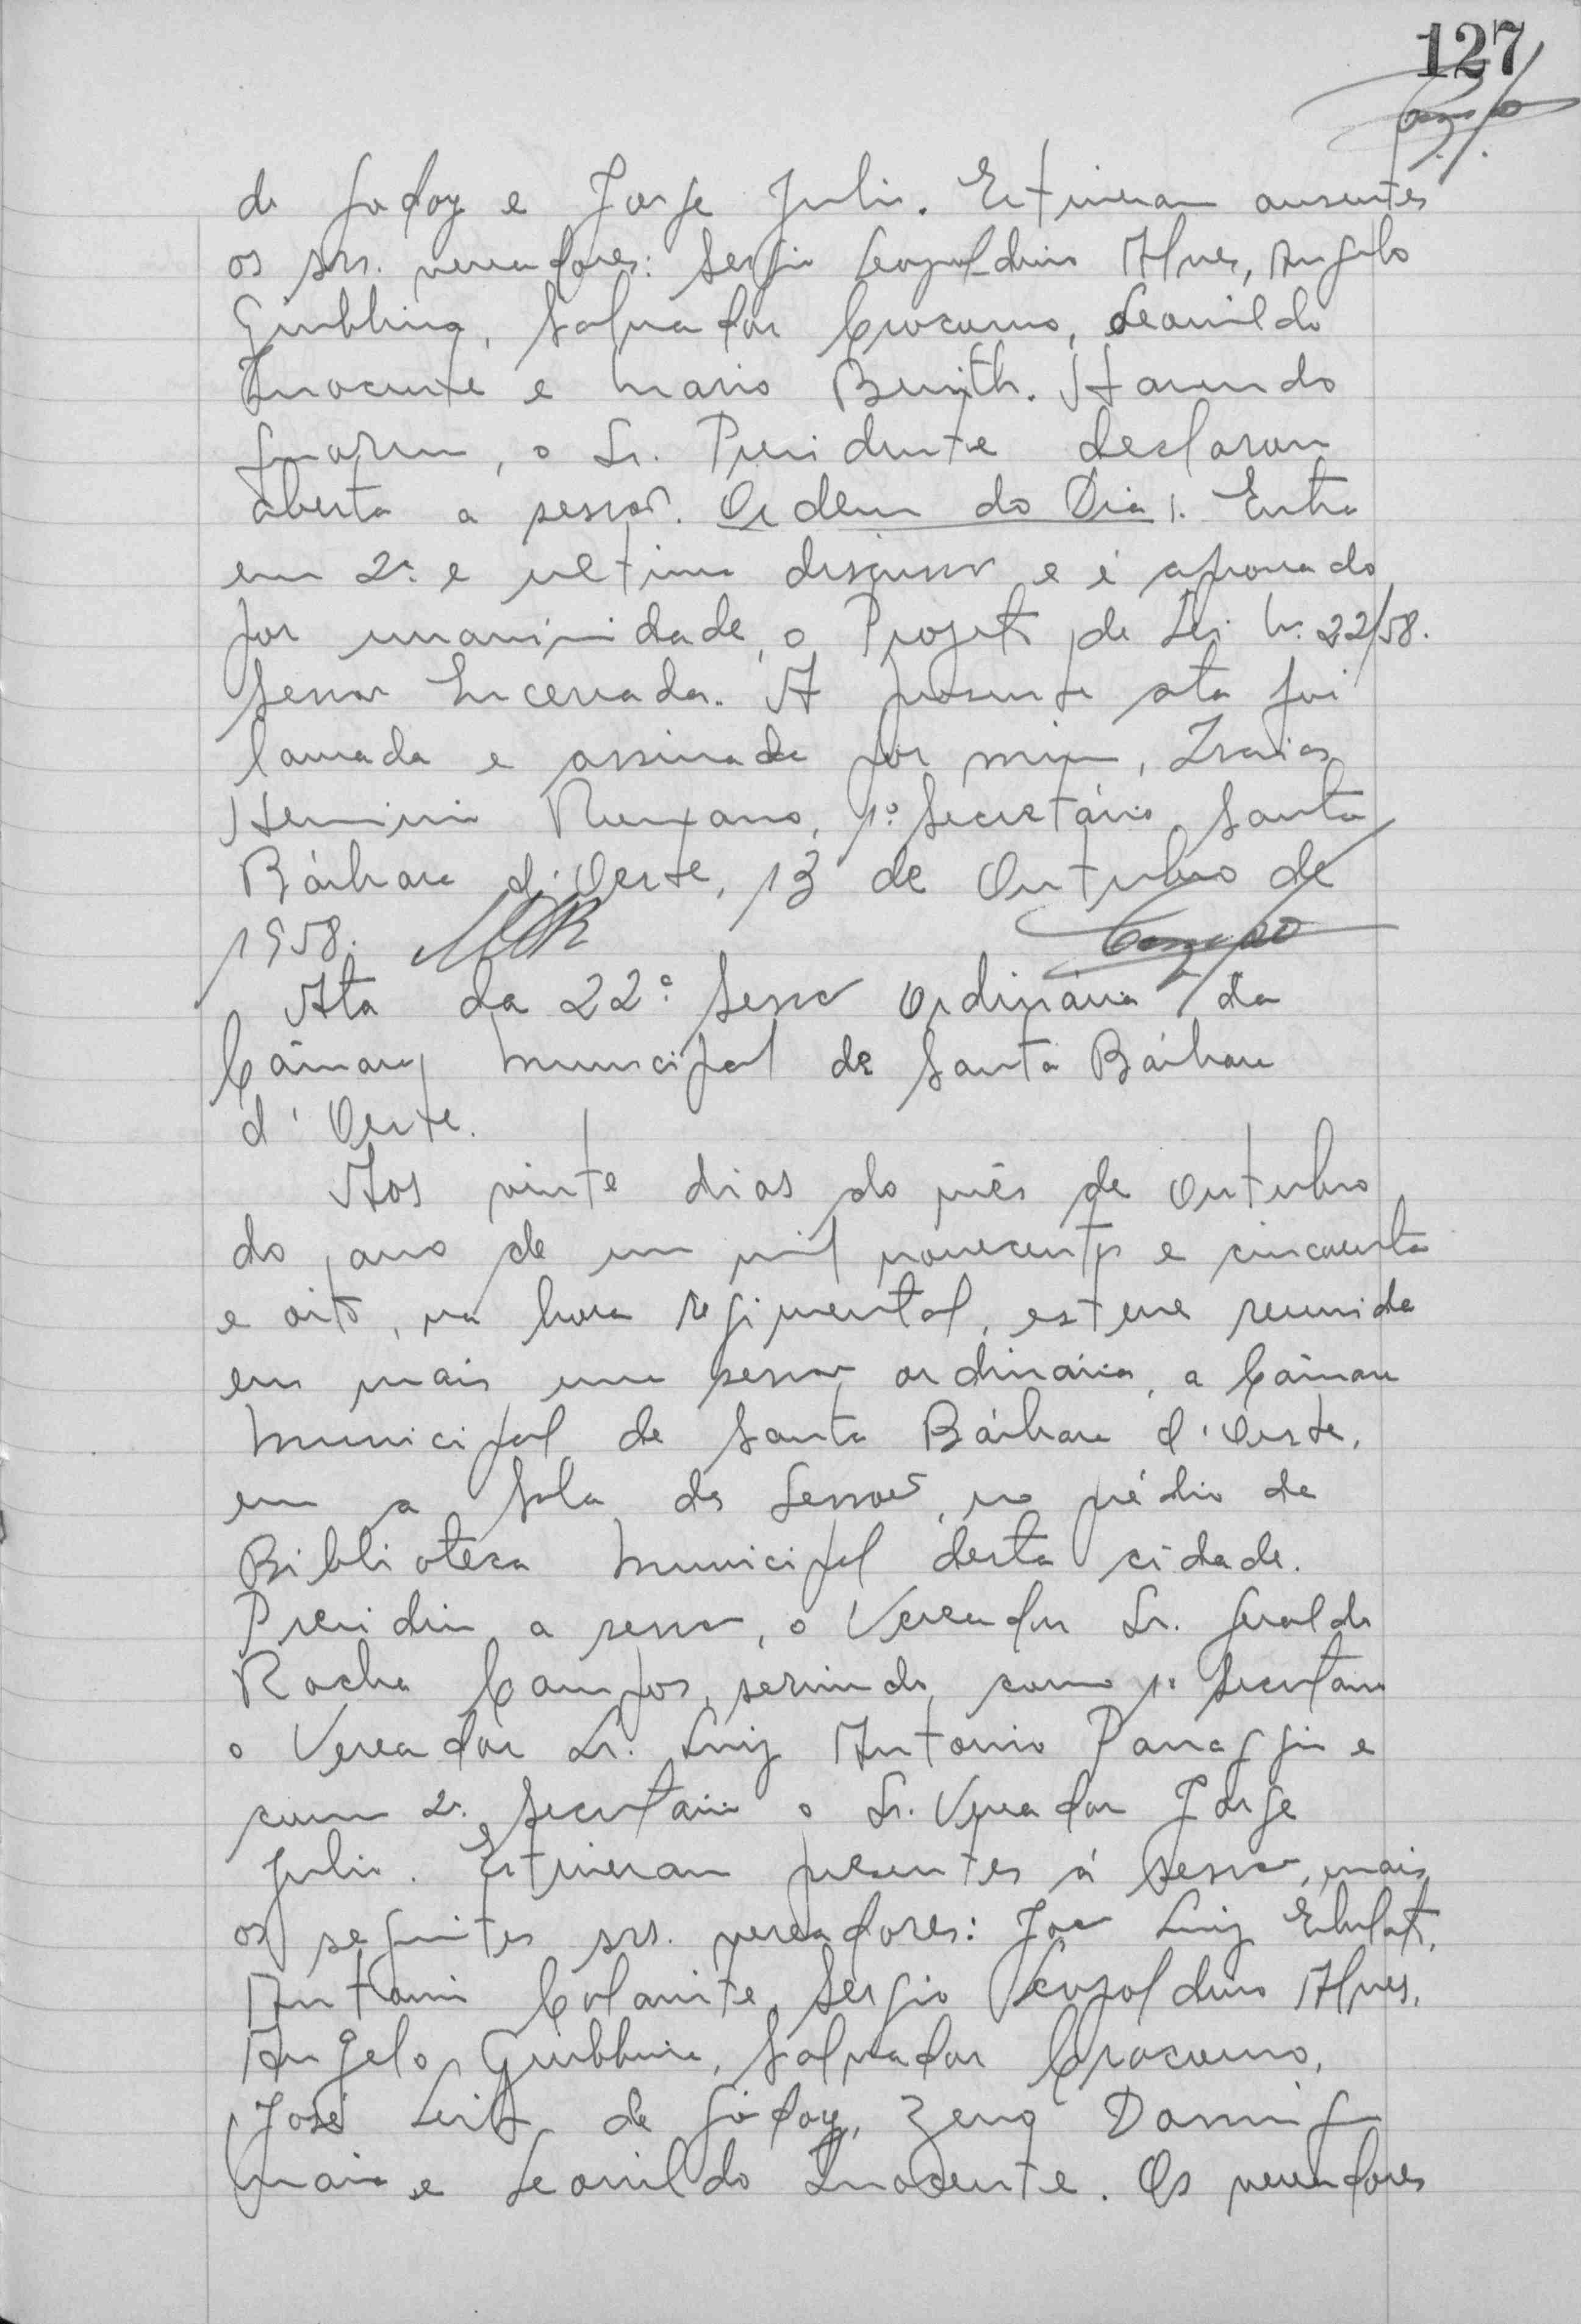 127
de Godoy e Jorge Julio. Estiveram ausentes
os srs. vereadores: Sergio Leopoldino Alves, Angelo
Giubbina, Salvador Crocomo, Leonildo
Inocente e Mario Benith. Havendo
quorum, o Sr. Presidente declarou
aberta a sessão. Ordem do Dia. Entra
em 2ª e ultima discussão e é aprovado
por unanimidade, o Projeto de Lei Nº 22/58.
Sessão Encerrada. A presente ata foi
lavrada e assinada por mim, Isaias
Herminio Romano, 1º Secretário Santa
Bárbara d'Oeste, 13 de Outubro de
1958. Campos
Ata da 22ª Sessão Ordinária da
Câmara Municipal de Santa Bárbara
d'Oeste.
Aos vinte dias do mês de Outubro
do ano de um mil novecentos e cincoenta
e oito, na hora regimental, esteve reunida
em mais uma sessão ordinária, a Câmara
Municipal de Santa Bárbara d'Oeste,
em a Sala das Sessões, no prédio da
Biblioteca Municipal desta cidade.
Presidiu a sessão, o Vereador Sr. Geraldo
Rocha Campos, servindo como 1º Secretário
o Vereador Sr. Luiz Antonio Panaggio e
como 2º Secretário o Sr. Vereador Jorge
Julio. Estiveram presentes á sessão, mais
os seguintes srs. vereadores: João Luiz
Antonio Sergio Leopoldino Alves,
Angelo Giubbina, Salvador Crocomo,
José Leite de Godoy, Zeno Domingos
Maia e Leonildo Inocente. Os vereadores